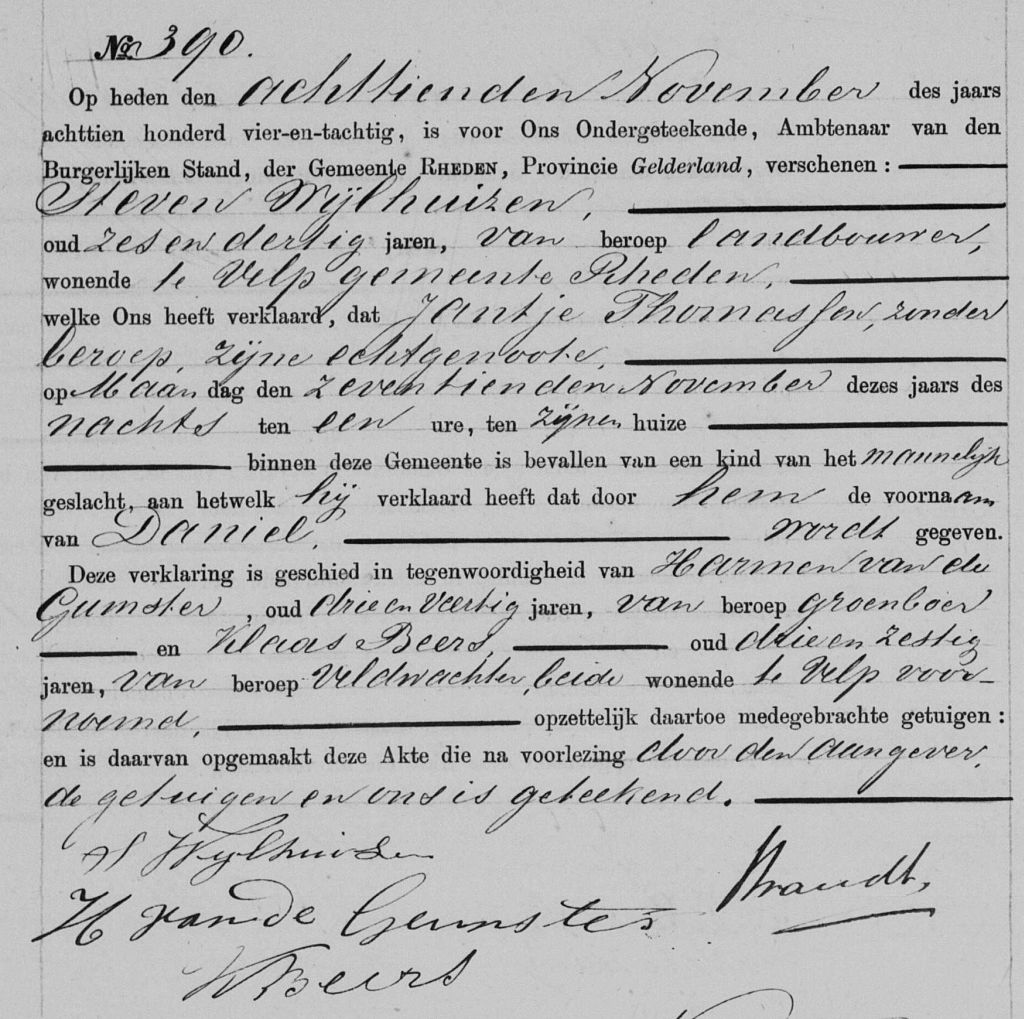 No 390.
Op heden den achttienden November des jaars
achttien honderd vier-en-tachtig, is voor Ons Ondergeteekende, Ambtenaar van den
Burgerlijken Stand, der Gemeente RHEDEN, Provincie Gelderland, verschenen:
Steven Wijlhuizen,
oud zes en dertig jaren, van beroep landbouwer,
wonende te Velp gemeente Rheden,
welke Ons heeft verklaard, dat Jantje Thomassen, zonder
beroep, zijne echtgenoote,
op Maandag den zeventienden November dezes jaars des
nachts ten een ure, ten zijnen huize
binnen deze Gemeente is bevallen van een kind van het mannelijk
geslacht, aan hetwelk hij verklaard heeft dat door hem de voornaam
van Daniel, wordt gegeven.
Deze verklaring is geschied in tegenwoordigheid van Harmen van de
Gumster, oud drie en veertig jaren, van beroep groenboer
en Klaas Beers, oud drie en zestig
jaren, van beroep veldwachter, beide wonende te Velp voor-
noemd, opzettelijk daartoe medegebrachte getuigen:
en is daarvan opgemaakt deze Akte die na voorlezing door den aangever,
de getuigen en ons is geteekend.
S Wijlhuizen
Brandt,
H van de Gumster
K Beers